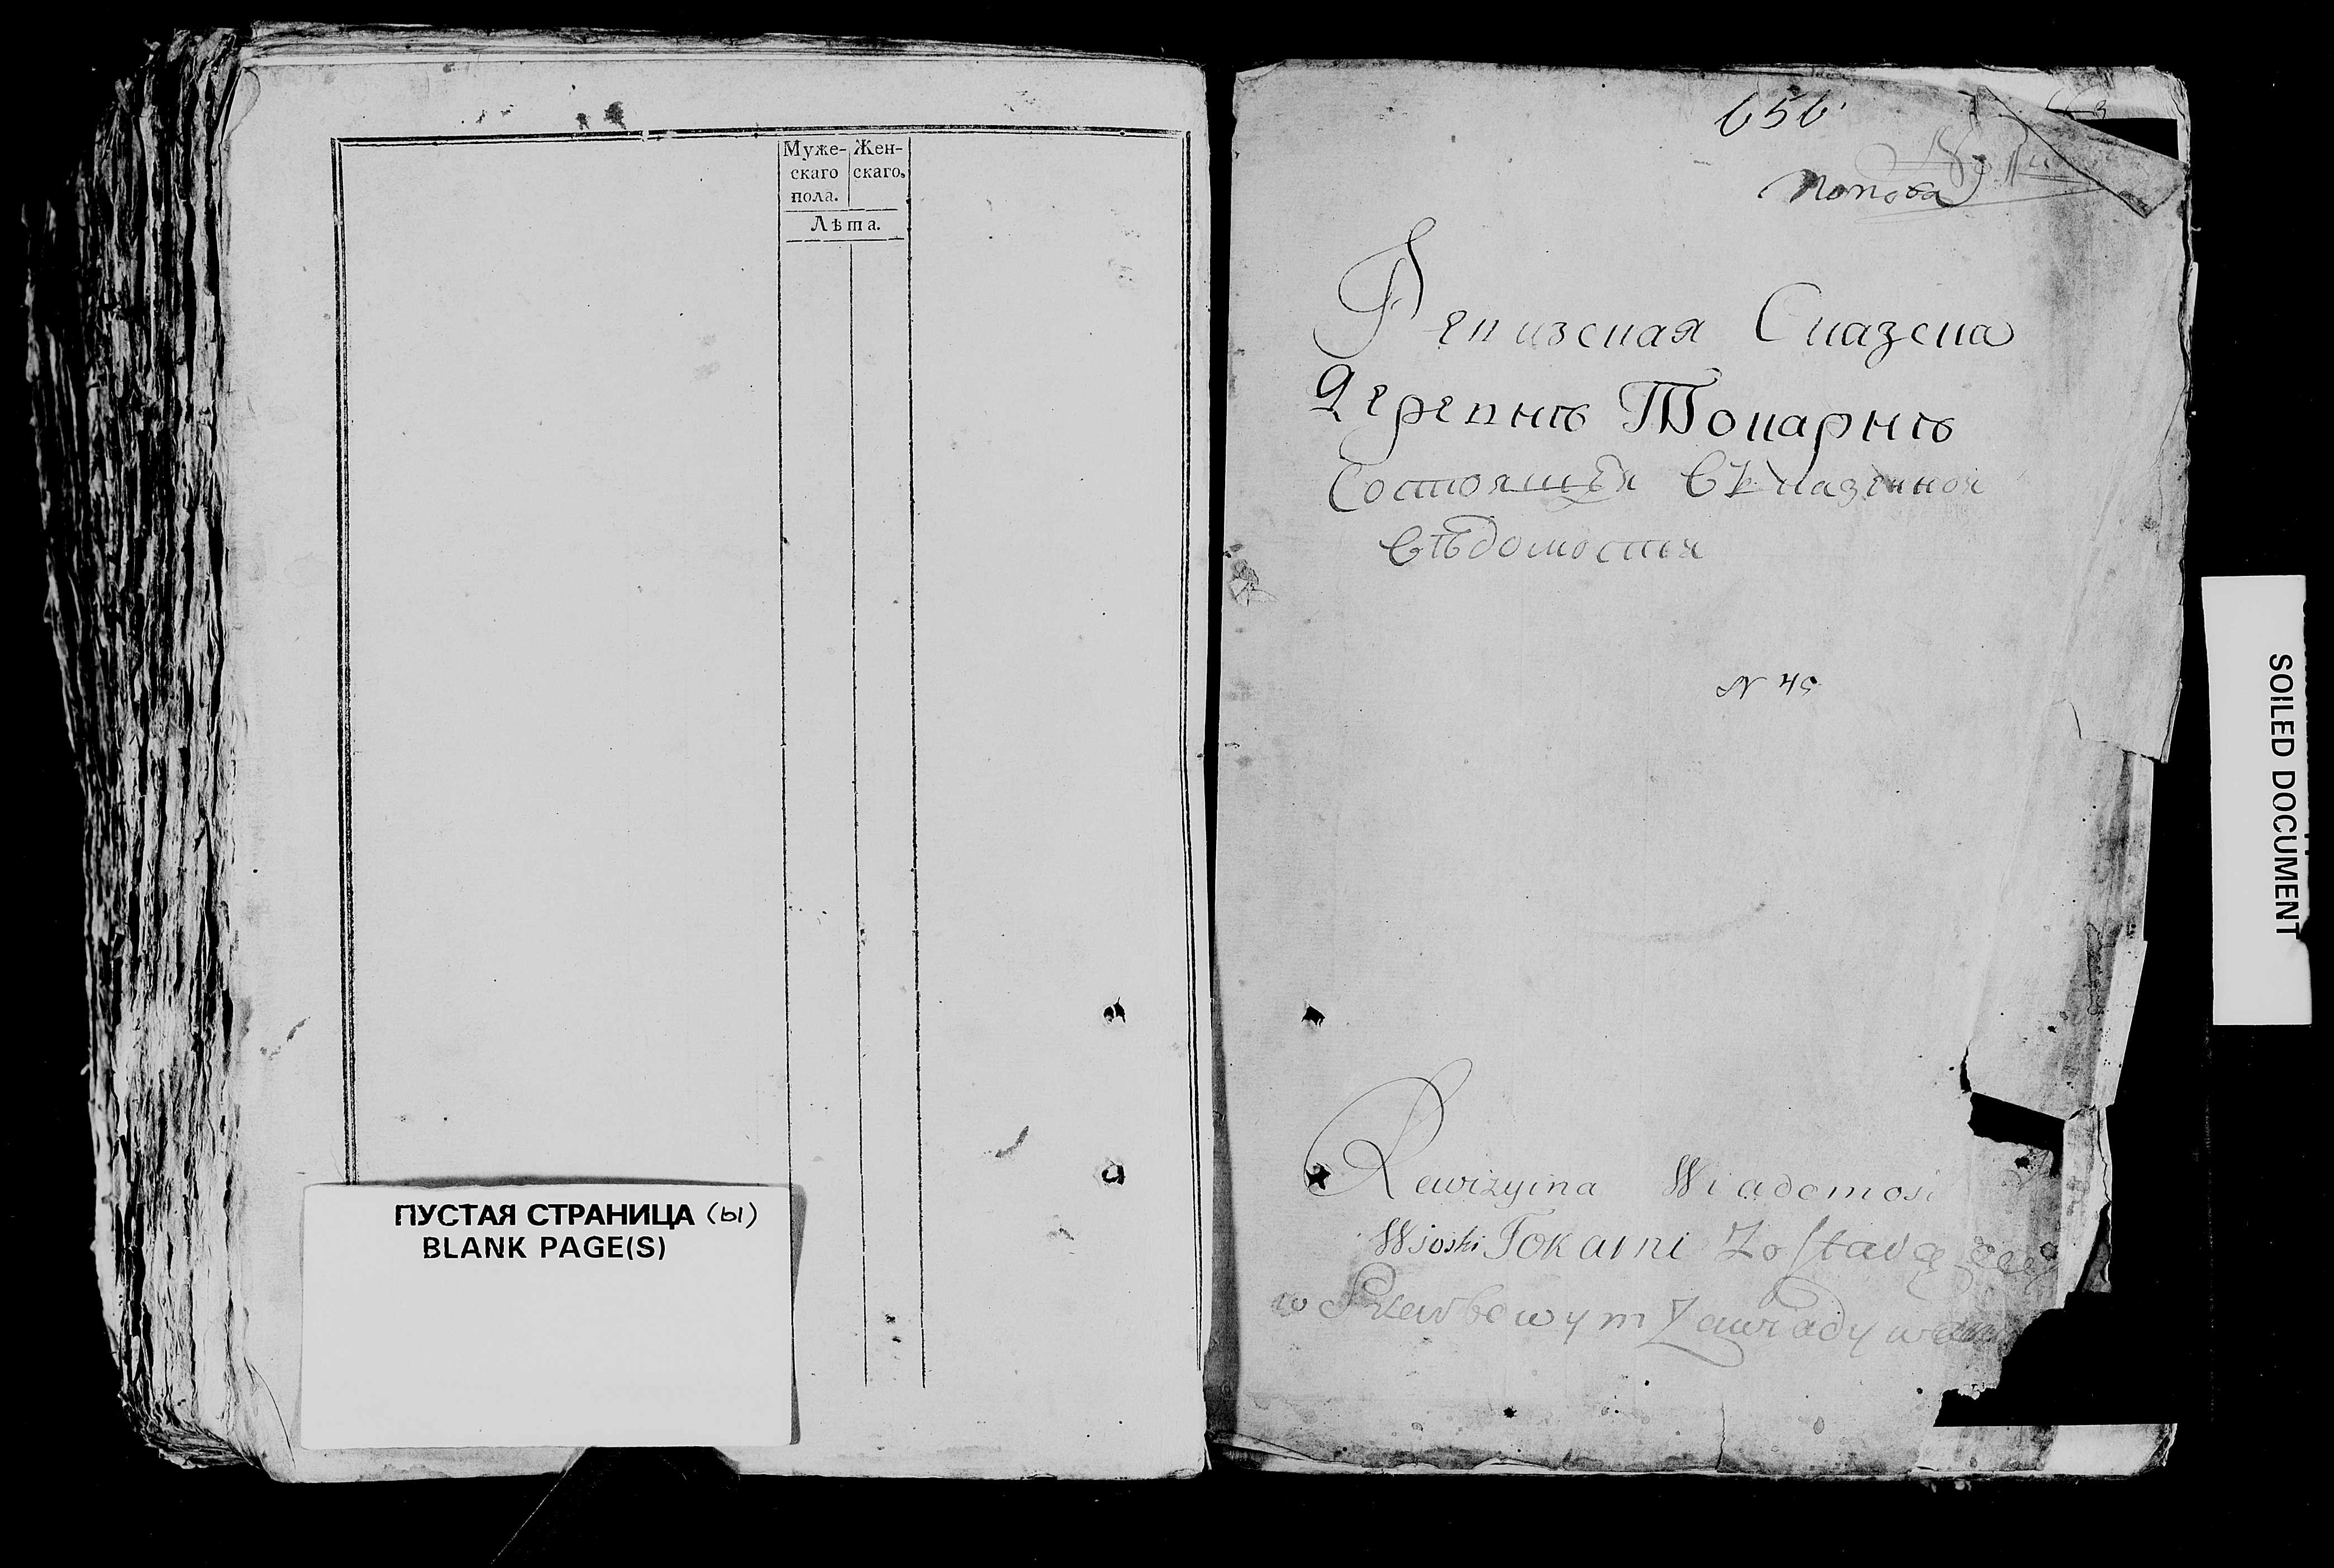 Муже-
скаго
пола.
Жен-
скаго.
Лѣта.
ПУСТАЯ СТРАНИЦА (ы)
BLANK PAGE(S)
656
Попова
Ревизская Сказска
Деревнѣ Токарнѣ
Состоящея въ казенной
вѣдомости
N 45
Rewizyina Wiadomosi
Wioski Tokarni Zostaiączey
w Skarbowym Zawiadywan
SOILED DOCUMENT